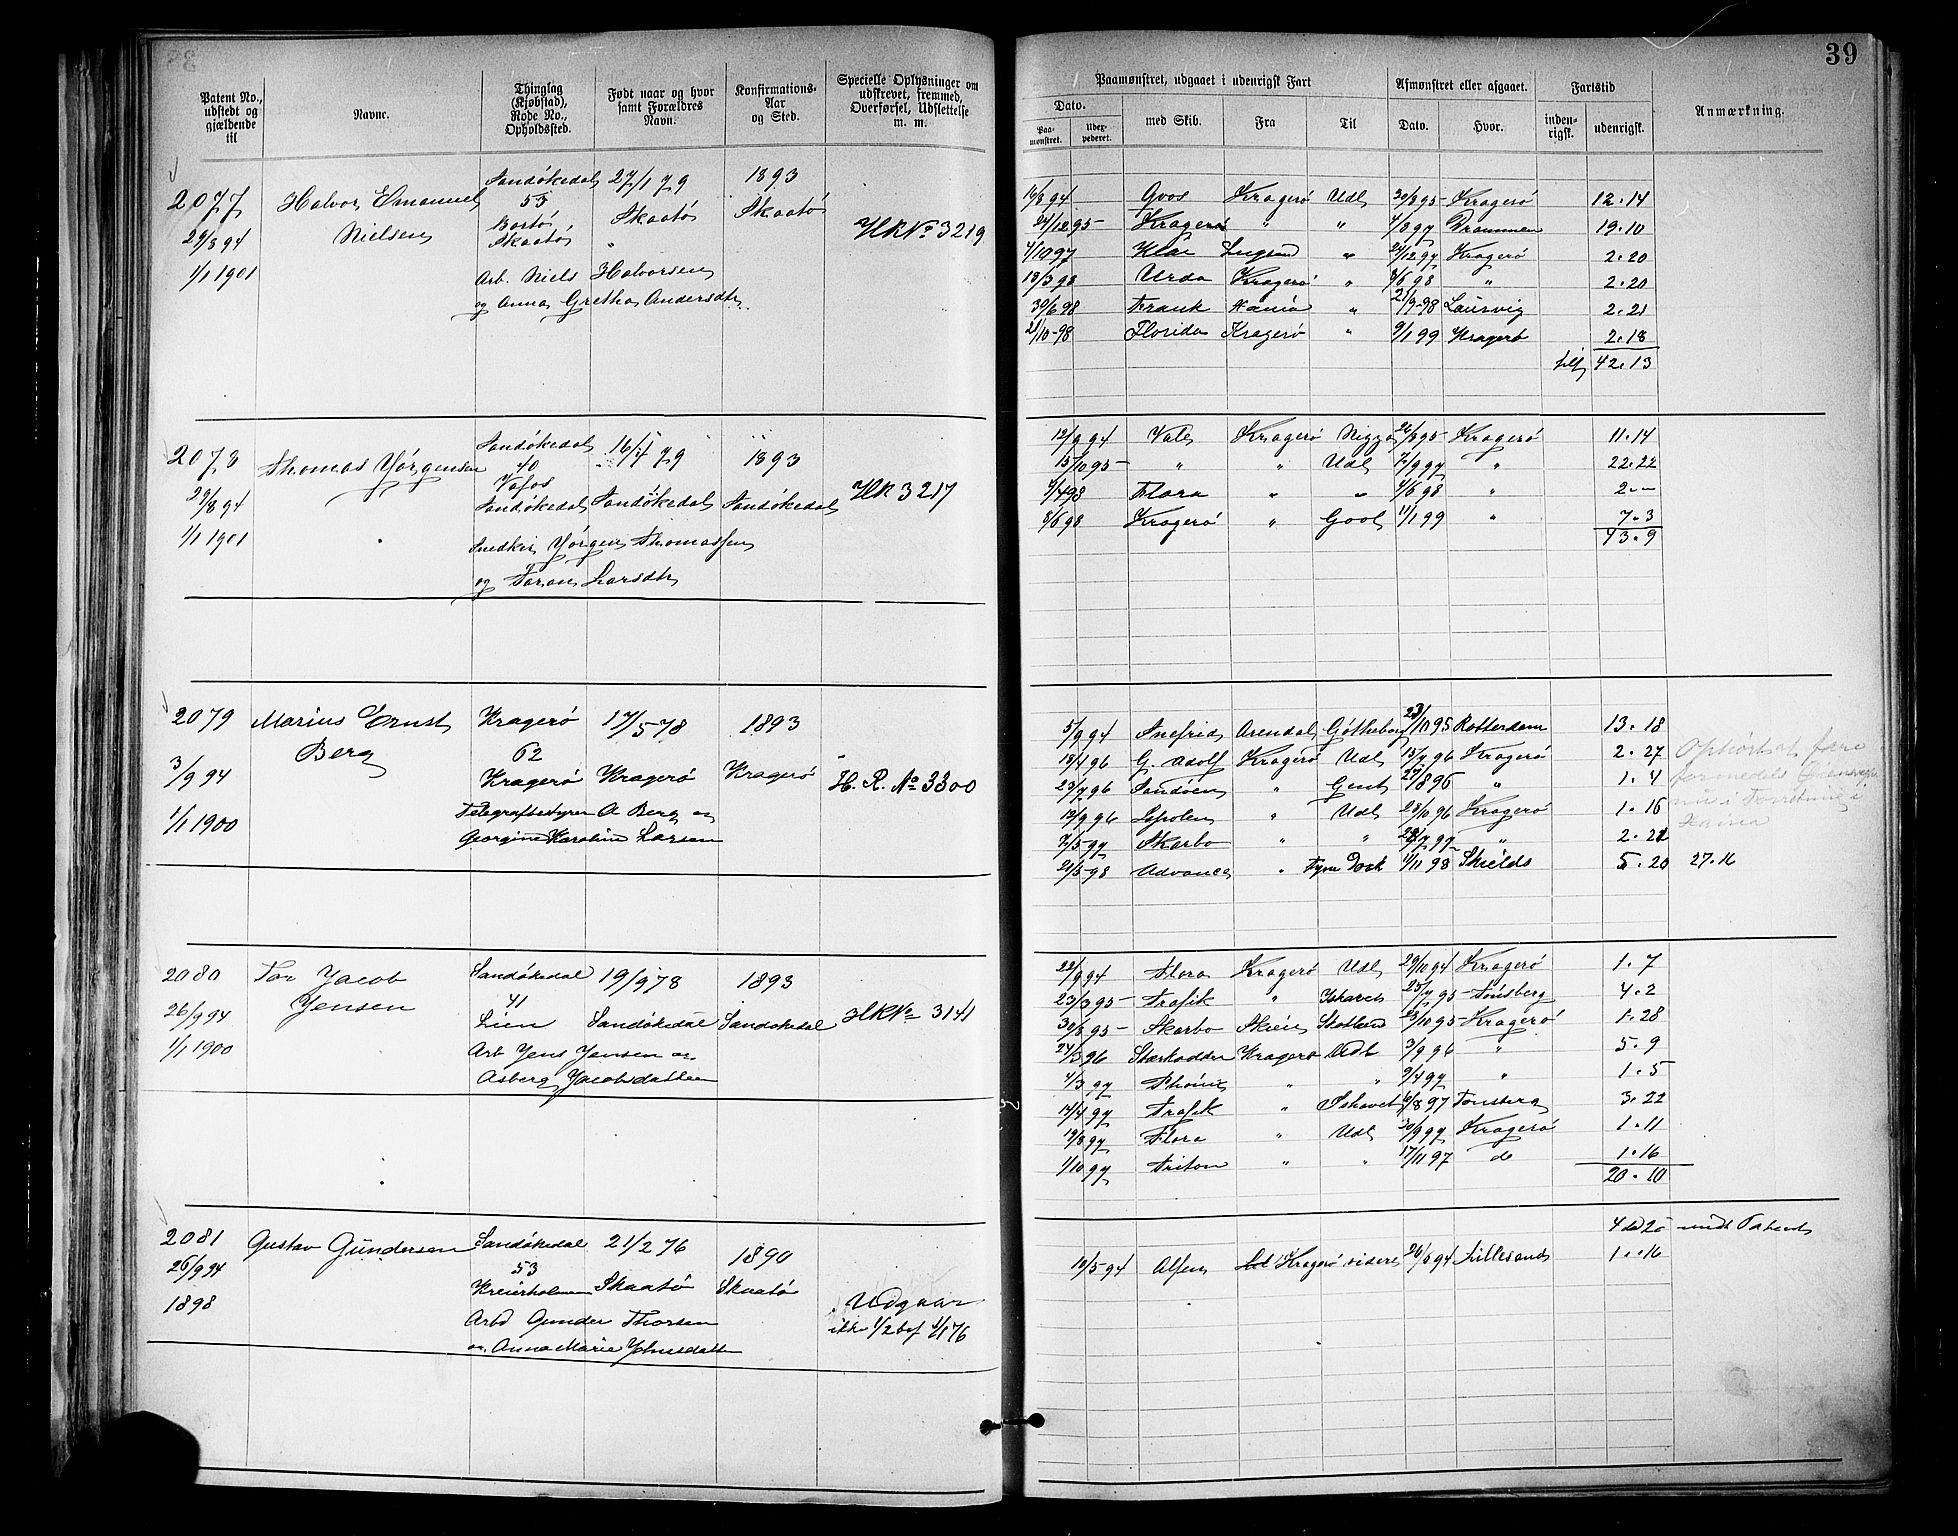 39
Patent No., udstedt og gjældende til
Navne.
Thinglag (Kjøbstad), Rode No., Opholdssted.
Født naar og hvor samt Forældres Navn.
Konfirmations-Aar og Sted.
Specielle Oplysninger om udskrevet, fremmed, Overførsel, Udslettelse m. m.
Paamønstret, udgaaet i udenrigsk Fart
Afmønstret eller afgaaet.
Fartstid
Anmærkning.
Dato.
Paamønstret.
Udexpederet.
med Skib.
Fra
Til
Dato.
Hvor.
indenrigsk.
udenrigsk.
2077 Halvor Emanuel Sandøkedal 27/1 79 1893
53
Nielsen Bortø Skaatø Skaatø HRNo 3219
29/8 94 Skaatø "
1/1 1901 Arb. Niels Halvorsen
og Anna Grethe Andersdtr
16/8 94 Gvos Kragerø Udl 30/8 95 Kragerø 12.14
24/12 95 Kragerø " " 4/8 97 Drammen 19.10
4/10 97 " 24/12 97 Kragerø 2.20
13/3 98 Urda Kragerø " 3/6 98 " 2.20
30/6 98 Frank " 21/9 98 Laurvig 2.21
21/10 98 Florida Kragerø " 9/1 99 Kragerø 2.18
42.13
2078 Thomas Jörgensen Sandøkedal 16/4 79 1893
40
Vafos
29/8 94 Sandøkedal Sandökedal Sandökedal HR 3217
1/1 1901 Snedker Jörgen Thomassen
og Taran Larsdtr
12/9 94 Vale Kragerø 26/8 95 Kragerø 11.14
15/10 95 " " Udl 7/9 97 " 22.22
9/4 98 Flora " " 4/6 98 " 2 –
8/6 98 Kragerö " Gool 11/1 99 " 7.3
43.9
2079 Marius Ernst Kragerö 17/5 78 1893
Berg 62
3/9 94 Kragerö Kragerö Kragerö H. R. No 3300
1/1 1900 Telegrafbestyrer A Berg og
Georgine Karoline Larsen
5/9 94 Snefrid Arendal Götheborg 23/10 95 Rotterdam 13.18
13/4 96 G. Adolf Kragerö Udl 15/7 96 Kragerö 2.27
23/7 96 Sandöen " Gent 29/8 96 " 1.4
12/9 96 " Udl 28/10 96 Kragerö 1.16
7/5 97 Skarbo " " 97 " 2.21
21/5 98 Advance " Tyne Dock 1/11 98 Shields 5.20 27.16
2080 Tor Jacob Sandökedal 19/9 78 1893
Jensen 41
26/9 94 Lien Sandökedal Sandökedal HRNo 3141
1/1 1900 Arb Jens Jensen og
Asberg Jacobsdatter
22/9 94 Flora Kragerö Udl 29/10 94 Kragerö 1.7
23/3 95 Trafik " Ishavet 25/7 95 Tönsberg 4.2
30/8 95 Skarbo Skien Skotland 23/10 95 Kragerö 1.28
24/3 96 Starkodder Kragerö Udl 3/9 96 " 5.9
4/3 97 Phönix " " 9/4 97 " 1.5
14/4 97 Trafik " Ishavet 6/8 97 Tönsberg 3.22
19/8 97 Flora " Udl 30/9 97 Kragerö 1.11
1/10 97 Triton " " 17/11 97 do 1.16
20.10
2081 Gustav Gundersen Sandökedal 21/2 76 1890
26/9 94 53
Kreierholmen Skaatö Skaatö
1898 Arbd Gunder Thorsen Udgaar
og Anna Marie Johnsdatter ikke 1/2 bef 1/1 76
4 25 Patent
19/5 94 Alfen Kragerö videre 26/6 94 Lillesand 1.16